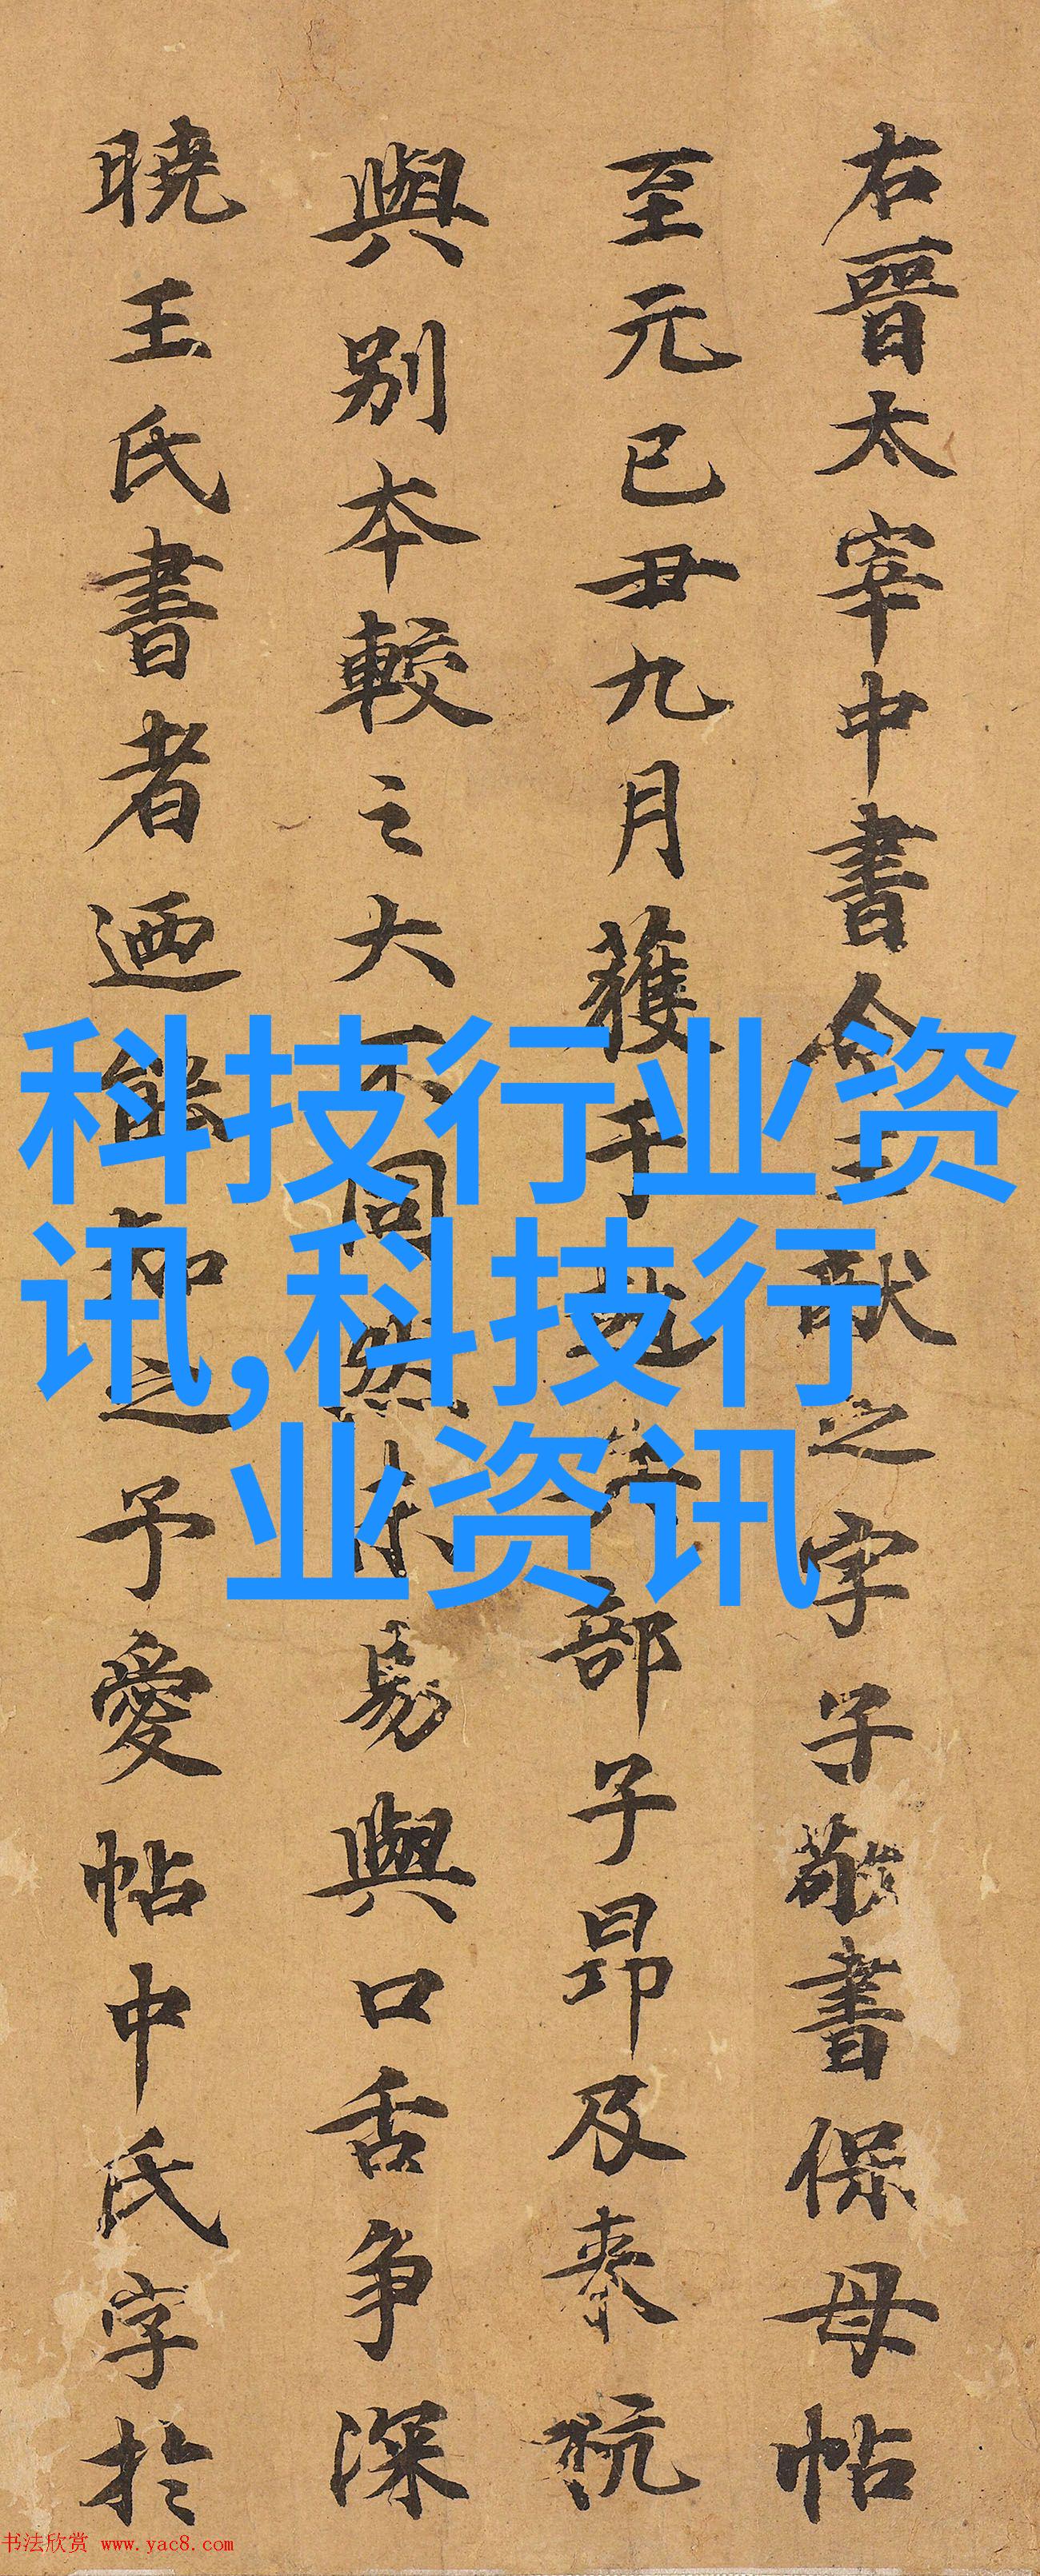 右晉太宰中書令王獻之字子敬書保母帖
至元己丑九月獲于錢唐 部子昂及泰杭
與别本較之大不同然未易與口舌争深
曉王氏書者迺能知之予愛帖中氏字於
科技行业资
讯,科技行
业资讯
书法欣赏 www.yac8.com